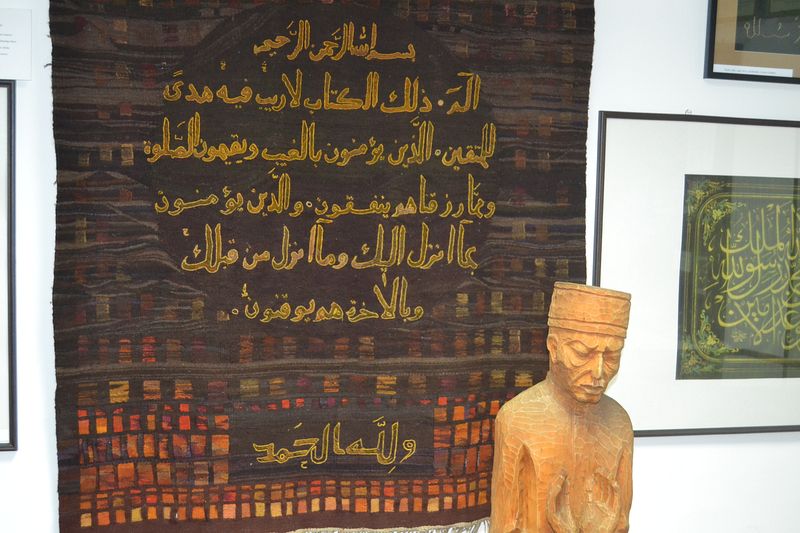 بسم الله الرحمن الرحيم
الم . ذلك الكتاب لا ريب فيه هدىً
للمتقين . الّذين يؤمنون بالغيب ويقيمون الصّلوة
وممّا رزقناهم ينفقون . والّذين يؤمنون
بمآ انزل اليك ومآ انزل من قبلك
وبالاخرة هم يوقنون .
ولله الحمد